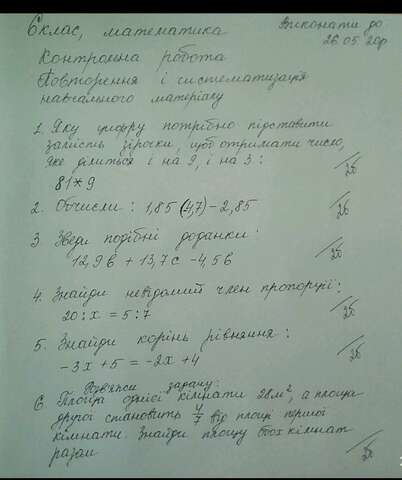 6 клас, математика
Виконати до
26.05 20р
Контрольна робота
Повторення і систематизація
навчального матеріалу
1. Яку цифру потрібно підставити
замість зірочки, щоб отримати число,
яке ділиться і на 9, і на 3:
/2б
81*9
2. Обчисли: 1,85(4,7)-2,85
/2б
3 Зведи подібні доданки:
12,9в + 13,7с -4,5в
/2б
4. Знайди невідомий член пропорції:
20:x = 5:7
/2б
5. Знайди корінь рівняння:
-3x+5 = -2x+4
/2б
Розв'яжи задачу:
6. Площа однієї кімнати 28м², а площа
другої становить 4/7 від площі першої
кімнати. Знайди площу обох кімнат
разом
/2б